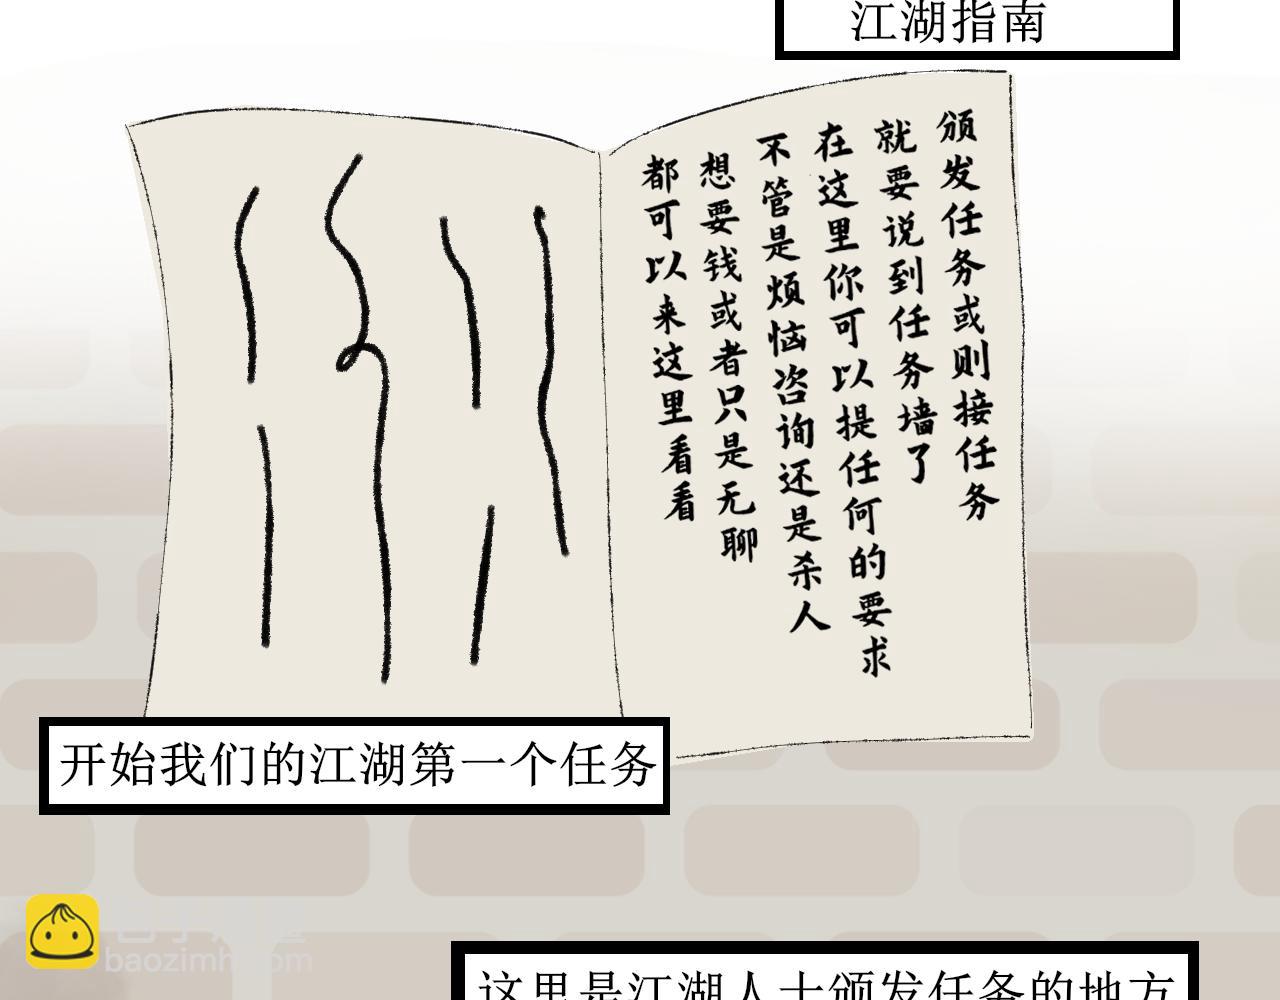 江湖指南
颁发任务或则接任务
就要说到任务墙了
在这里你可以提任何的要求
不管是烦恼咨询还是杀人
想要钱或者只是无聊
都可以来这里看看
开始我们的江湖第一个任务
baozimh.com
这里是江湖人士颁发任务的地方